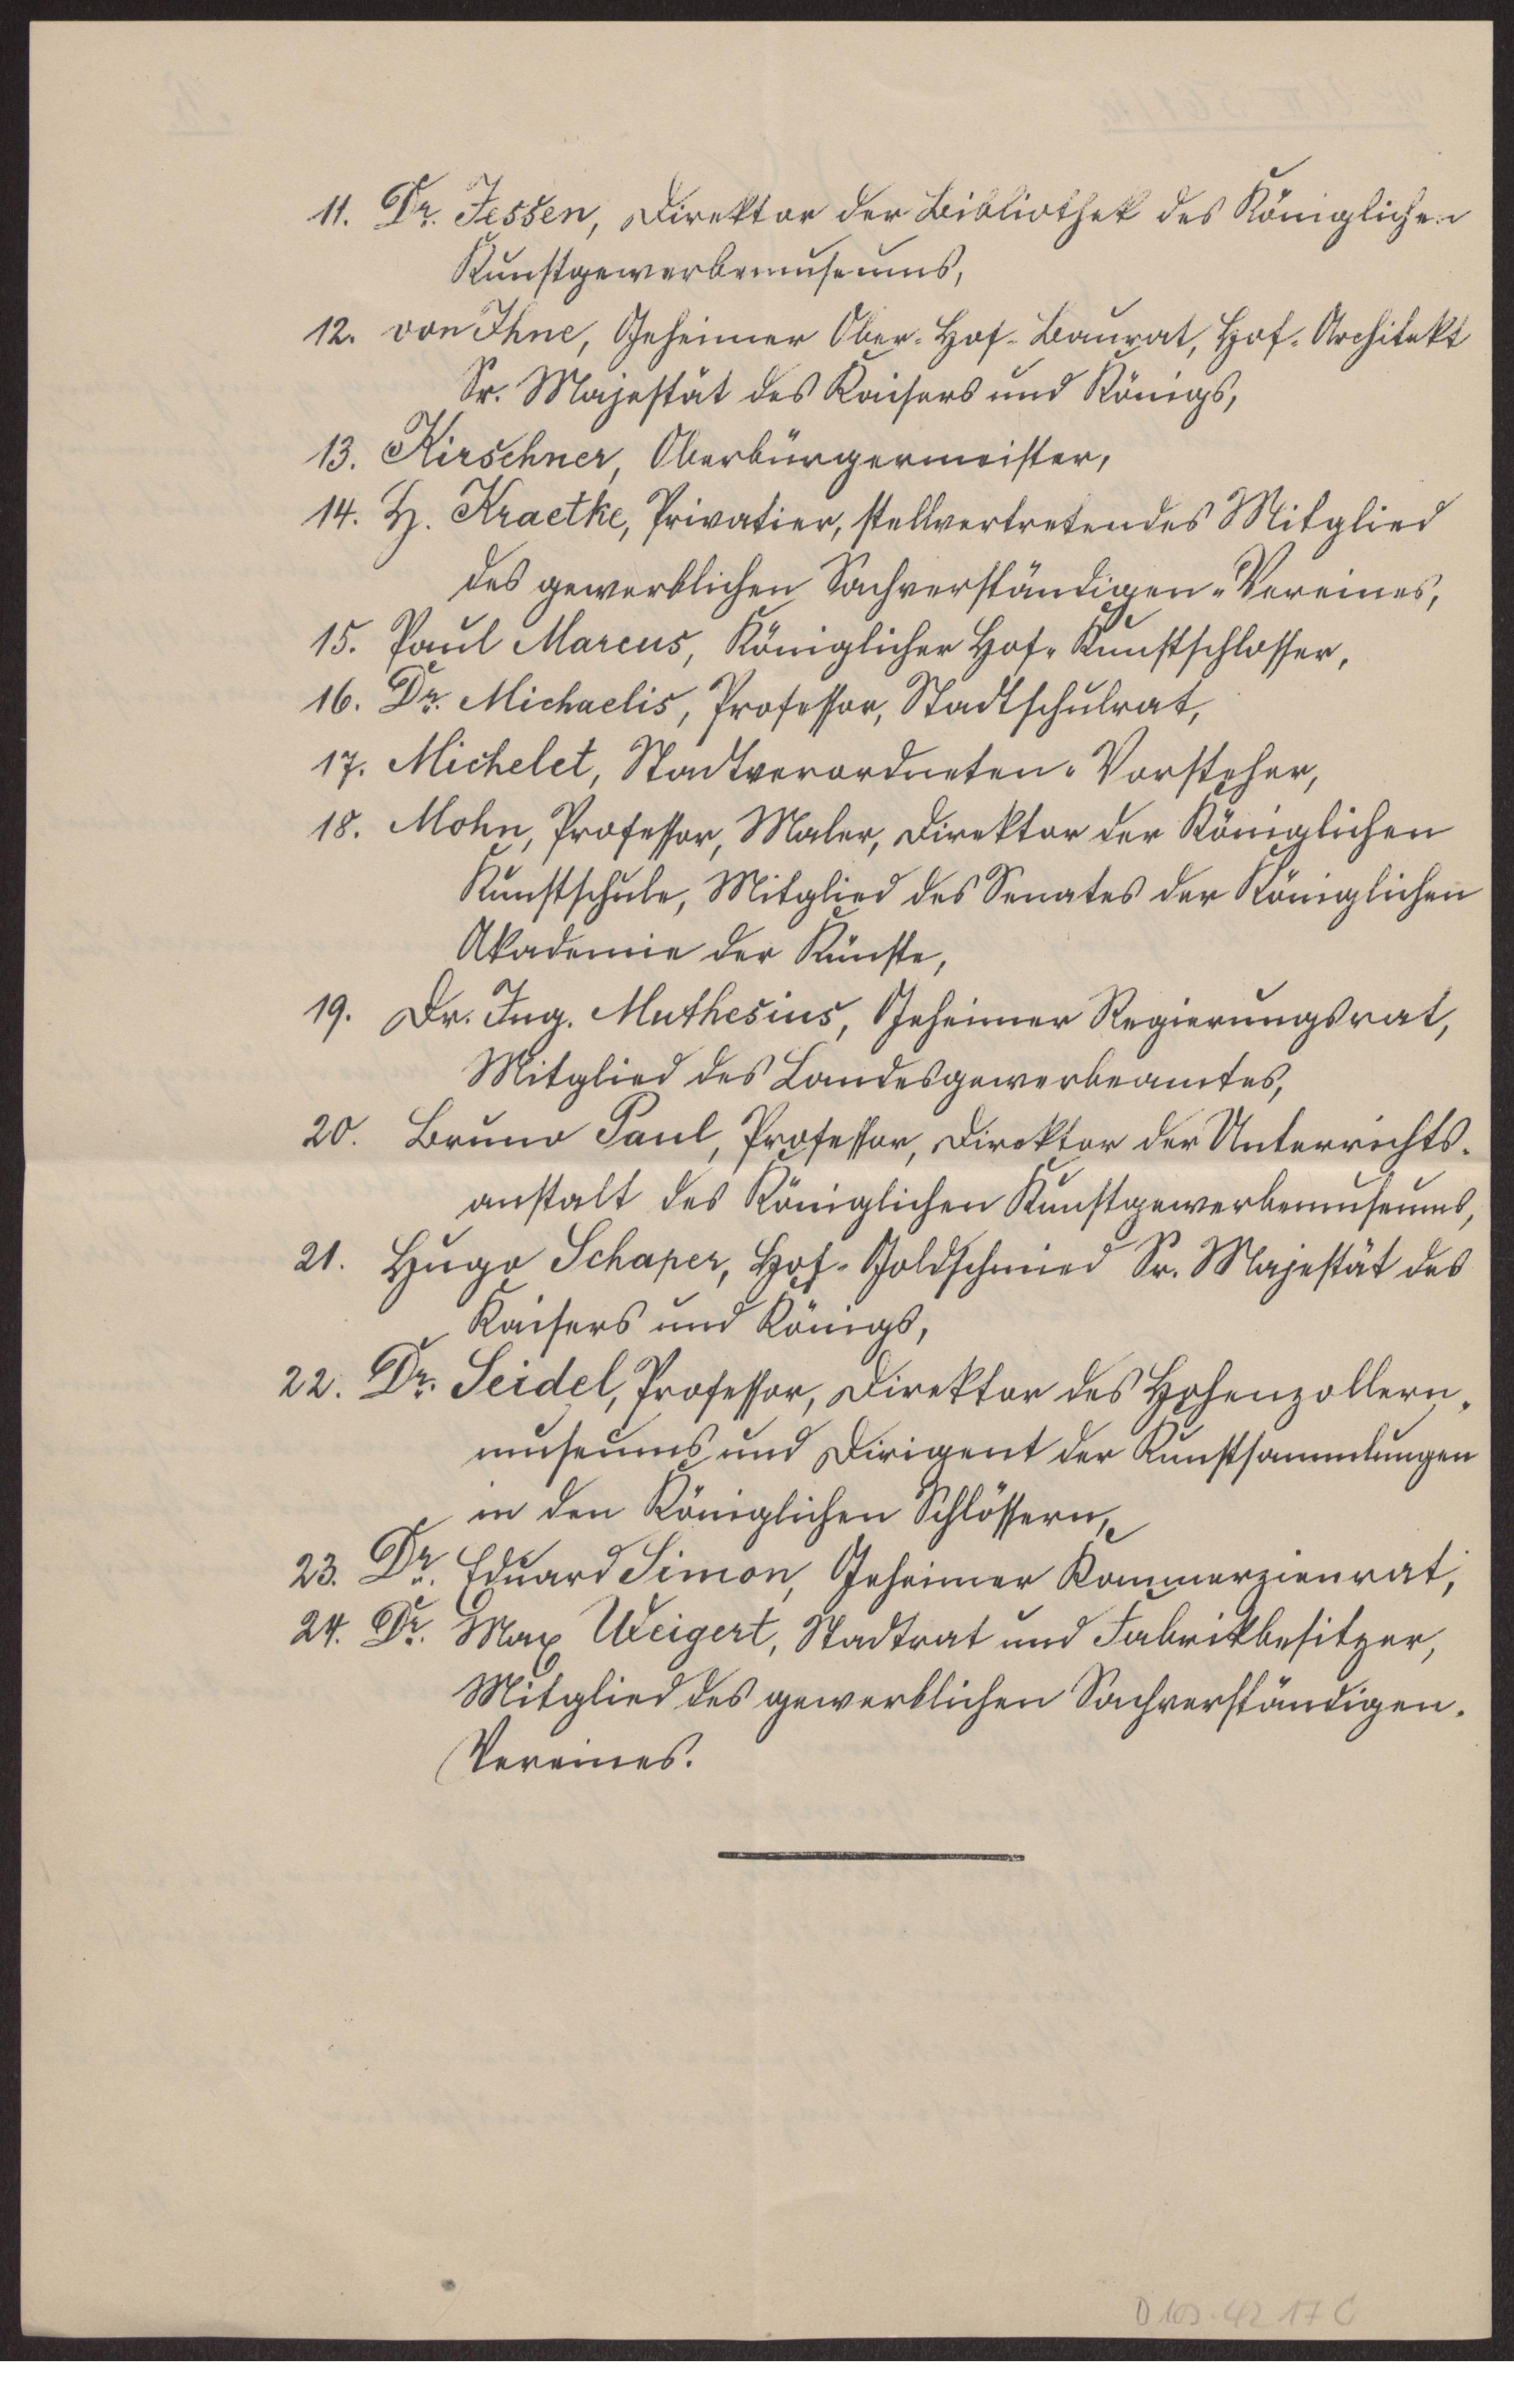 11. Dr. Jessen, Direktor der Bibliothek des Königlichen
Kunstgewerbemuseums,
12. von Ihne, Geheimer Ober-Hof-Baurat, Hof-Architekt
Sr. Majestät des Kaisers und Königs,
13. Kirschner, Oberbürgermeister,
14. H. Kraetke, Privatier, stellvertretendes Mitglied
des gewerblichen Sachverständigen-Vereines,
15. Paul Marcus, Königlicher Hof-Kunstschlosser,
16. Dr. Michaelis, Professor, Stadtschulrat,
17. Michelet, Stadtverordneten-Vorsteher,
18. Mohn, Professor, Maler, Direktor der Königlichen
Kunstschule, Mitglied des Senates der Königlichen
Akademie der Künste,
19. Dr. Ing. Muthesius, Geheimer Regierungsrat,
Mitglied des Landesgewerbeamtes,
20. Bruno Paul, Professor, Direktor der Unterrichts-
anstalt des Königlichen Kunstgewerbemuseums,
21. Hugo Schaper, Hof-Goldschmied Sr. Majestät des
Kaisers und Königs,
22. Dr. Seidel, Professor, Direktor des Hohenzollern-
museums und Dirigent der Kunstsammlungen
in den Königlichen Schlössern,
23. Dr. Eduard Simon, Geheimer Kommerzienrat,
24. Dr. Max Weigert, Stadtrat und Fabrikbesitzer,
Mitglied des gewerblichen Sachverständigen-
Vereines.